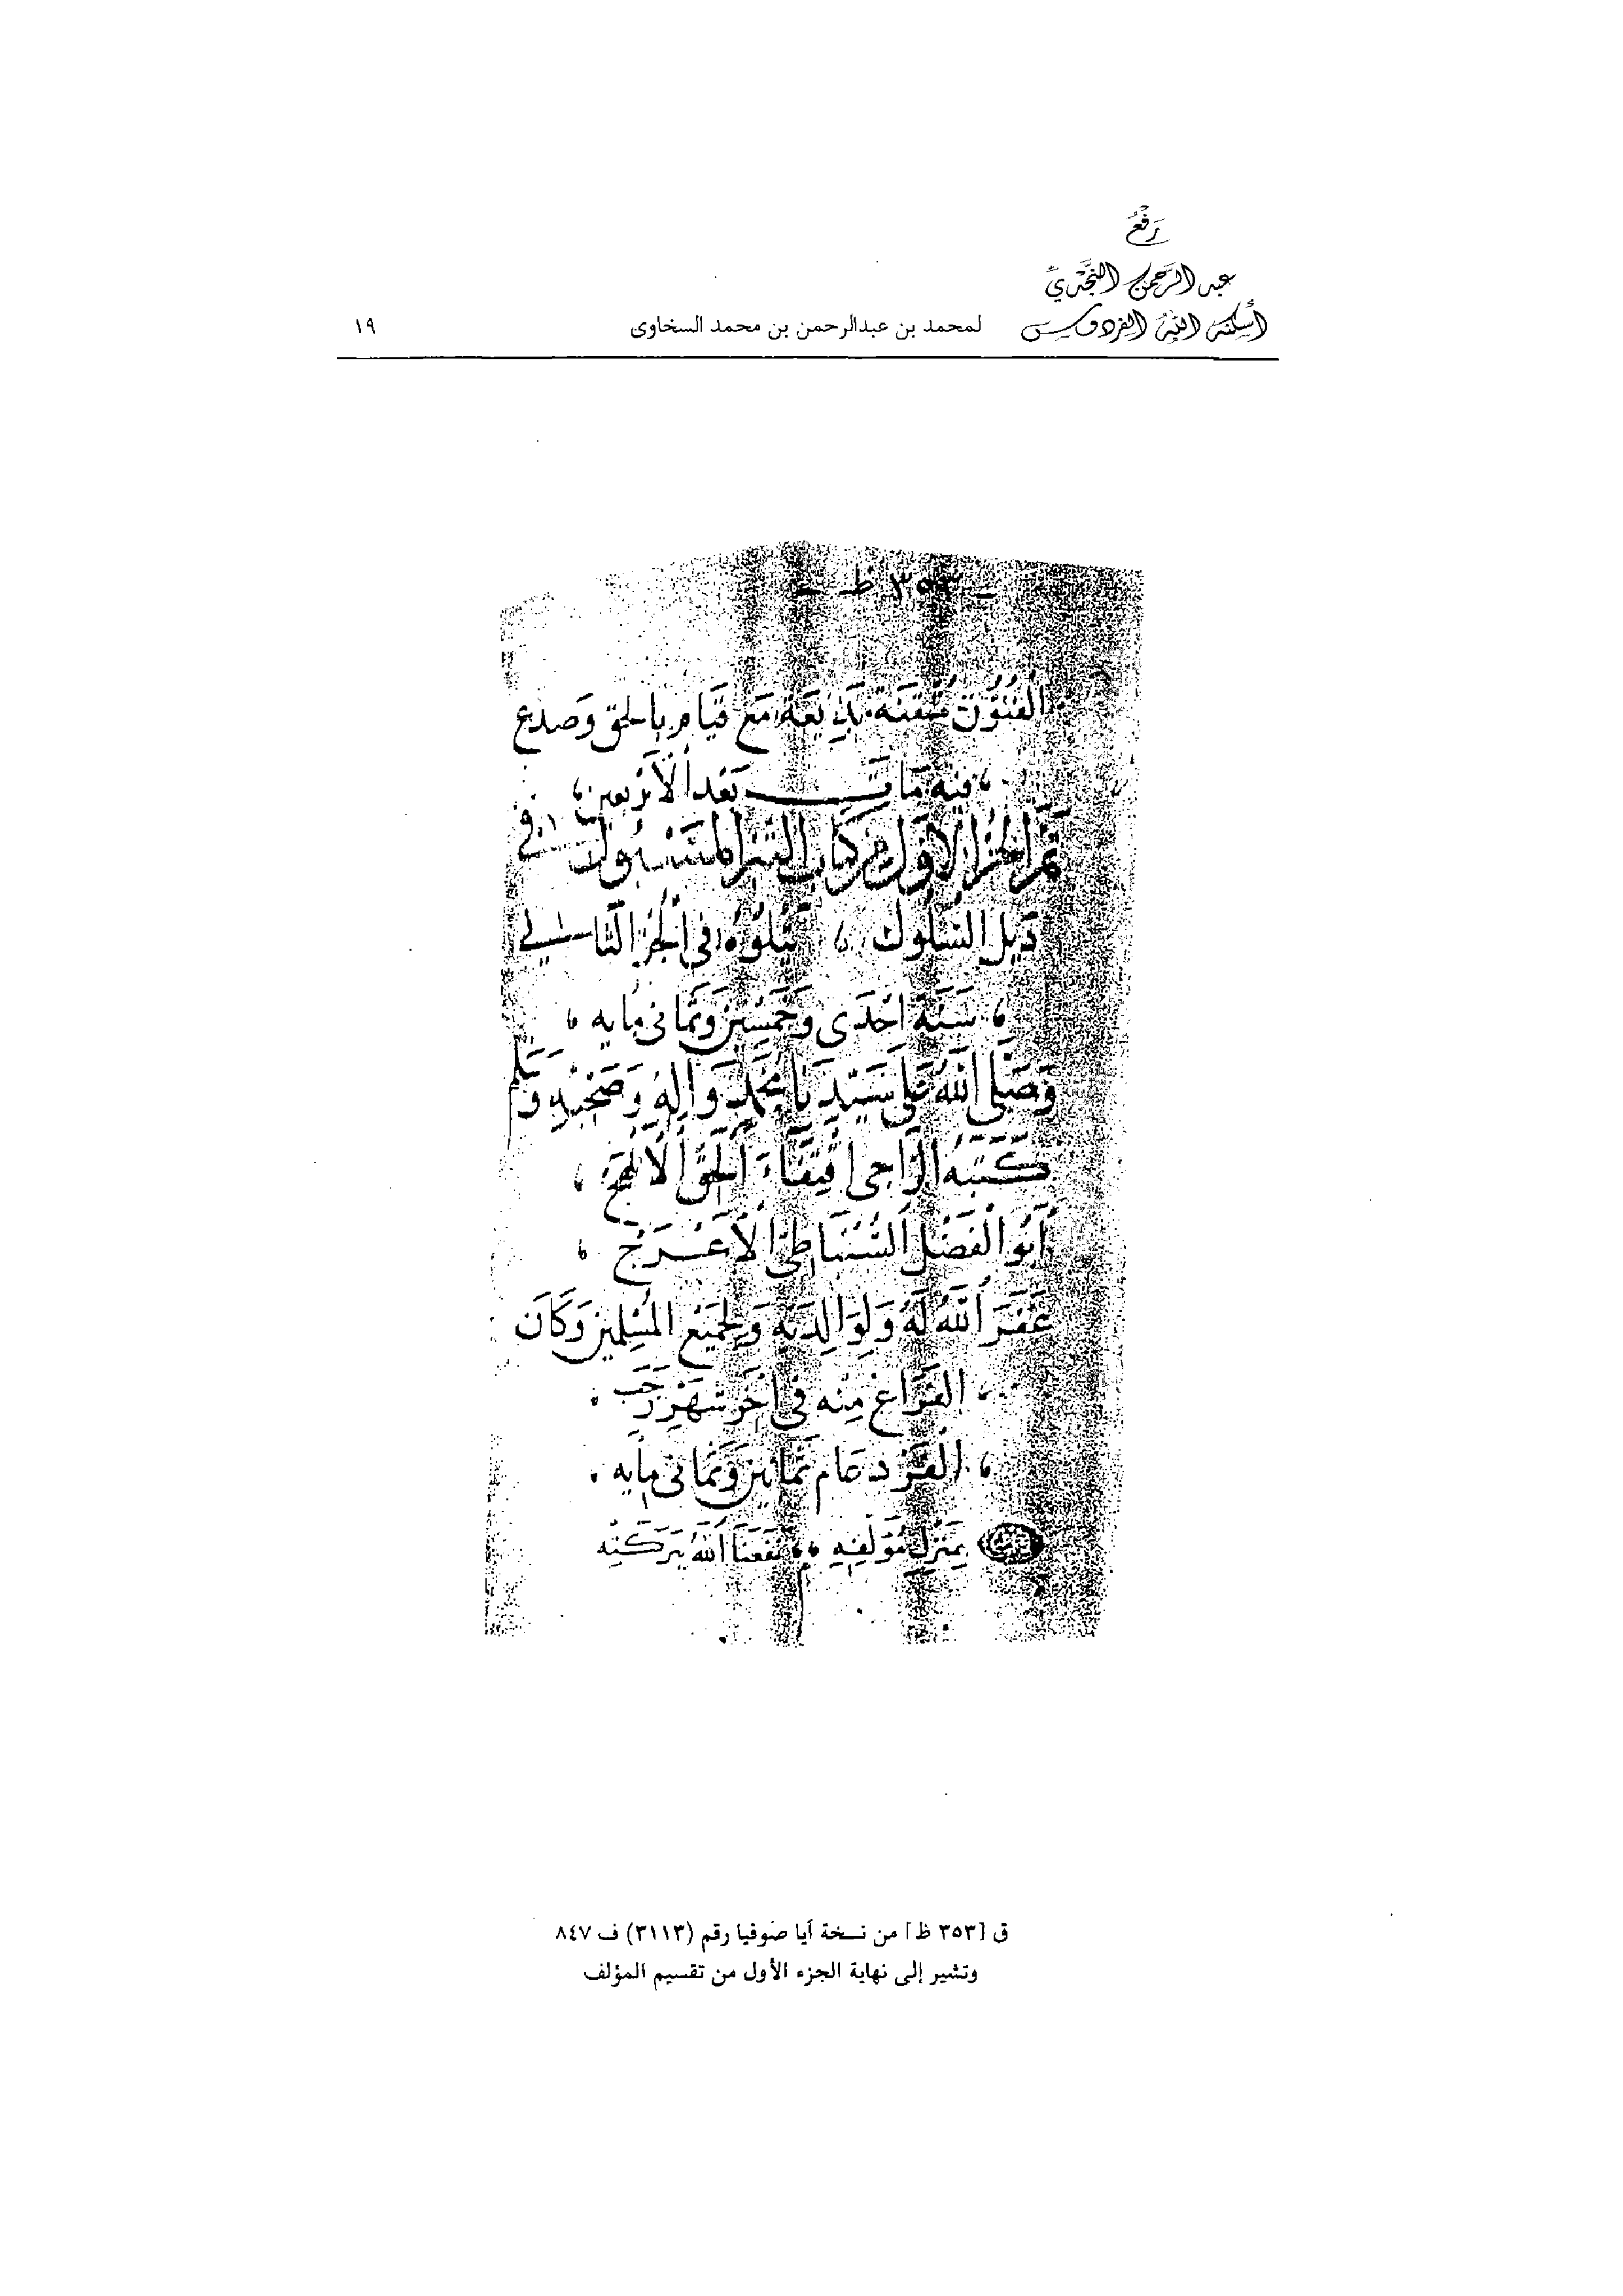 رفع
عبد الرحمن النجدي
أسكنه الله الفردوس
لمحمد بن عبدالرحمن بن محمد السخاوى ١٩
ـ ٣٥٣ ظ ـ
الفُنُوُن مُتقنَة بَدِيعَة مَع قيَام بِالحَق وَصدع
فيهِ مَاتَ بَعْد الأربعين
تمَّ الجزءُ الأول من كتاب التبر المسبُوك في
ذيل السُّلوك يَتلُوُه في الجزء الثاني
سَنَة احْدَى وَخمسين وَثمانى مايه
وَصَلى الله عَلى سَيّدنا محمد وَالِه وَصَحبِه وَسَلم
كتبَه الرَّاجى الحَقّ الأبلج
أبوُ الفَضْل السُّنبَاطِى الأعْرَج
غَفَر الله لَهُ وَلِوَالِدَيْه وَلجَميْع المُسْلِمين وَكَانَ
الفَراغ مِنْه في اخر شهر رَجَب
الفَرْد عَام ثمَانِين وَثمَانى مايه
بمنزل مُؤلفِه نفعَنَا الله ببَركتِه
ق [٣٥٣ ظ] من نسخة أيا صوفيا رقم (٣١١٣) ف ٨٤٧
وتشير إلى نهاية الجزء الأول من تقسيم المؤلف